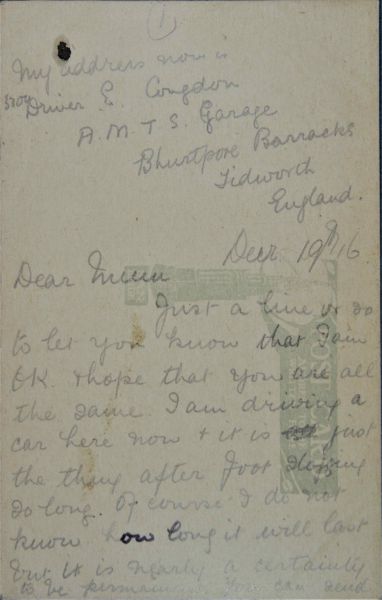 1
My address now is
Driver E. Congdon
A.M.T.S. Garage
Bhurtpore Barracks
Tidworth
England.
Decr 19th 16
Dear Mum
Just a line or so
to let you know that I am
O.K. & hope that you are all
the same. I am driving a
car here now & it is just
the thing after foot slogging
so long. Of course I do not
know how long it will last
but it is nearly a certainty
to be permanent. You can send